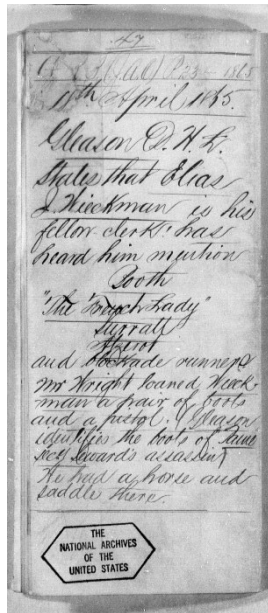 47
R. B. (J.A.O.) P. 25 - 1865
18th April 1865.
Gleason D. H. L.
States that Elias
J. Wieckman is his
fellow-clerk: has
heard him mention
Booth
"The French Lady"
Surratt
Atzerot
and blockade runners
Mr Wright loaned Wieck-
man a pair of boots
and a pistol. (Gleason
identifies the boots of Paine
Secy Seward's assassin)
He had a horse and
saddle there.
THE
NATIONAL ARCHIVES
OF THE
UNITED STATES